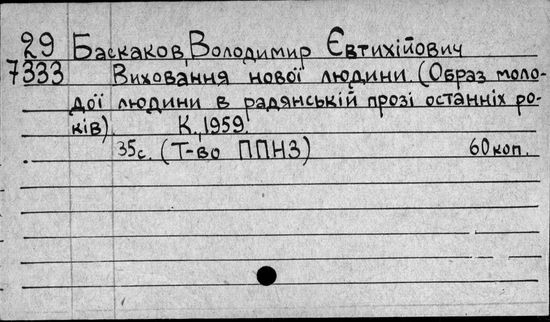 29 Баскаков, Володимир Євтихійович
7333 Виховання нової людини. (Образ моло-
дої людини в радянській прозі останніх ро-
ків). К., 1959.
35с. (Т-во ППНЗ) 60коп.